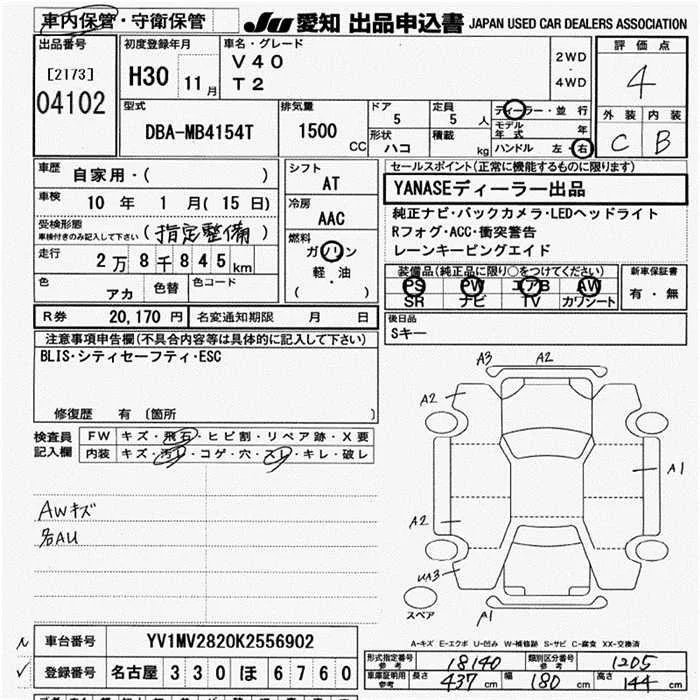 車内保管・守衛保管 JU 愛知 出品申込書 JAPAN USED CAR DEALERS ASSOCIATION
出品番号 [2173] 04102
初度登録年月 H30 11月
車名・グレード V40 T2
2WD・4WD
評価点 4
外装 C 内装 B
型式 DBA-MB4154T
排気量 1500 CC
ドア 5 定員 5人
形状 ハコ 積載 kg
ディーラー・並行
モデル年式 年
ハンドル 左・右
車歴 自家用・( )
車検 10年 1月(15日)
受検形態 車検付きのみ記入して下さい (指定整備)
走行 2万8千845km
色 アカ 色替 色コード
シフト AT
冷房 AAC
燃料 ガソリン・軽・油 ( )
セールスポイント(正常に機能するものに限ります)
YANASEディーラー出品
純正ナビ・バックカメラ・LEDヘッドライト
Rフォグ・ACC・衝突警告
レーンキーピングエイド
装備品(純正品に限り○をつけてください)
PS PW エアB AW
SR ナビ TV カワシート
新車保証書 有・無
R券 20,170円 名変通知期限 月 日
後日品
Sキー
注意事項申告欄(不具合内容等は具体的に記入して下さい)
BLIS・シティセーフティ・ESC
修復歴 有〔箇所
検査員記入欄
FW キズ・飛石・ヒビ割・リペア跡・X要
内装 キズ・汚レ・コゲ・穴・スレ・キレ・破レ
AWキズ
名AU
A3 A2
A2
A1
A2
UA3
A1
スペア
A-キズ E-エクボ U-凹み W-補修跡 S-サビ C-腐食 XX-交換済
車台番号 YV1MV2820K2556902
登録番号 名古屋 330 ほ 6760
形式指定番号 参考 18140 類別区分番号 参考 1205
車庫証明用 参考 長さ 437cm 幅 180cm 高さ 144cm